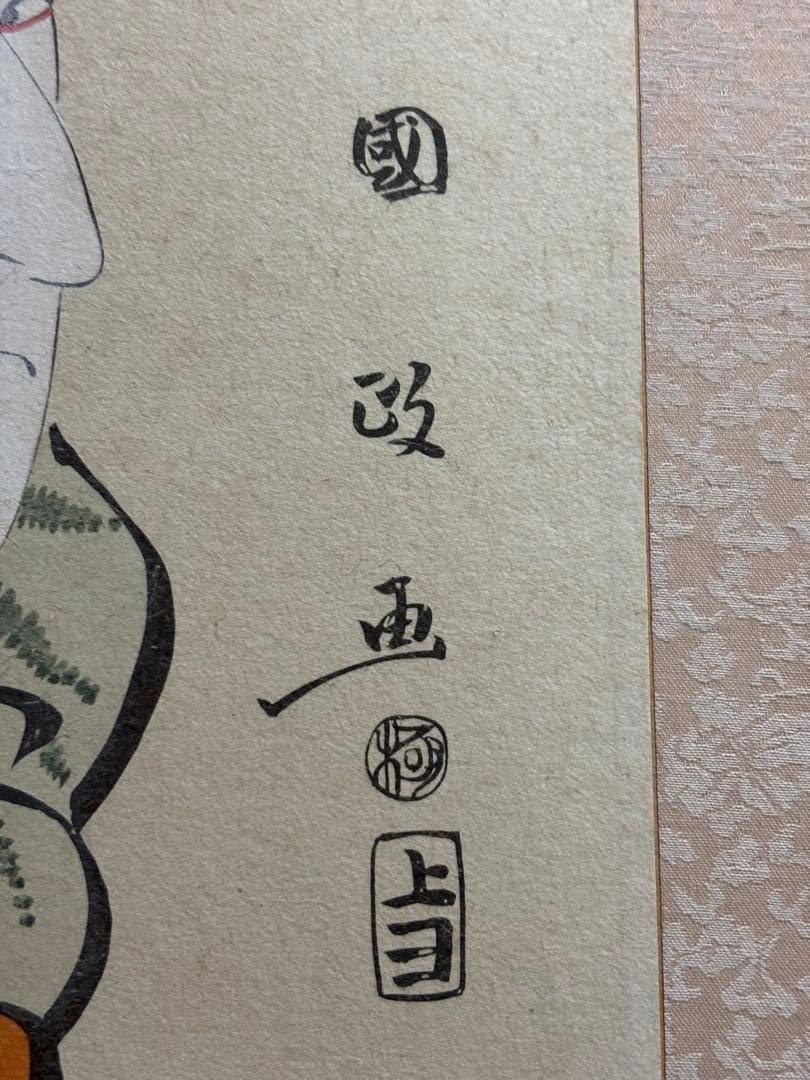 國政画
極
上ヨ